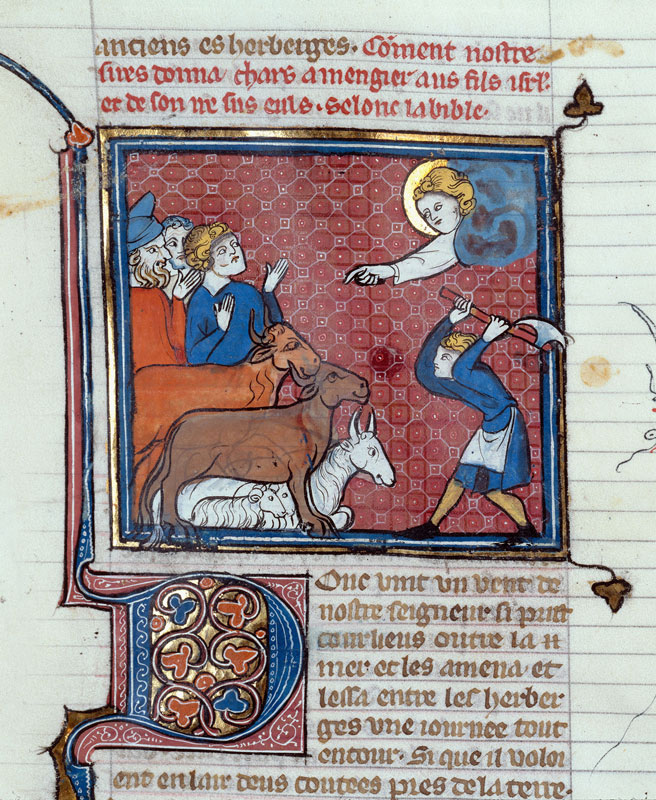 anciens es herberges. Coment nostre
sires donna chars a mengier aus fils isrl.
et de son ire sus euls. selonc la bible.
Donc vint un vent de
nostre seigneur si prist
courlieus outre la
mer et les amena et
lessa entre les herber
ges une iournee tout
entour. Si que il voloi
ent en lair deus coutees pres de la terre.